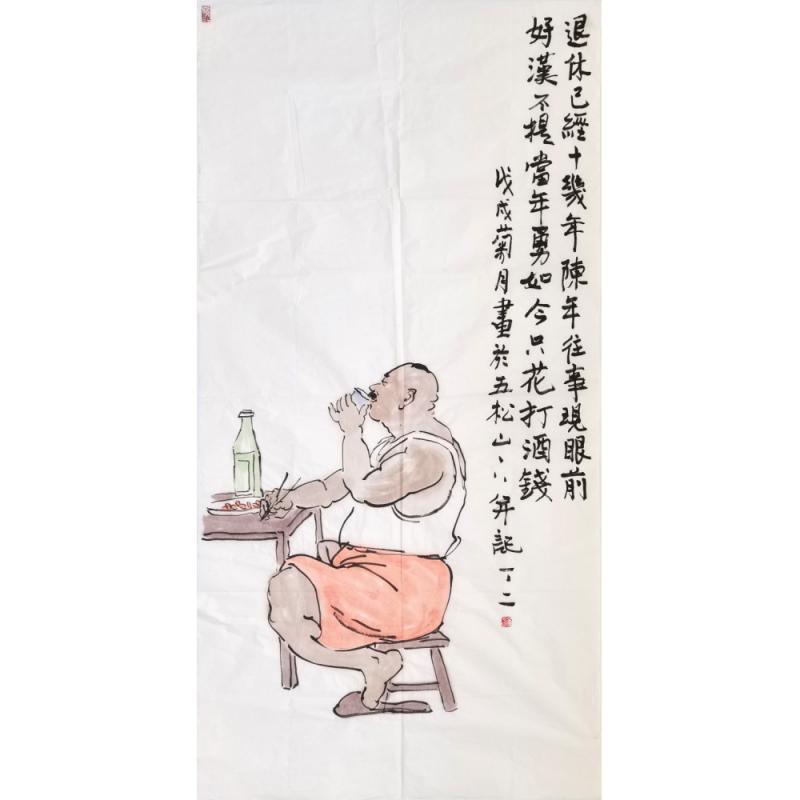 退休已經十幾年陳年往事現眼前
好漢不提當年勇如今只花打酒錢
戊戌菊月畫於五松山丶八年記 丁二